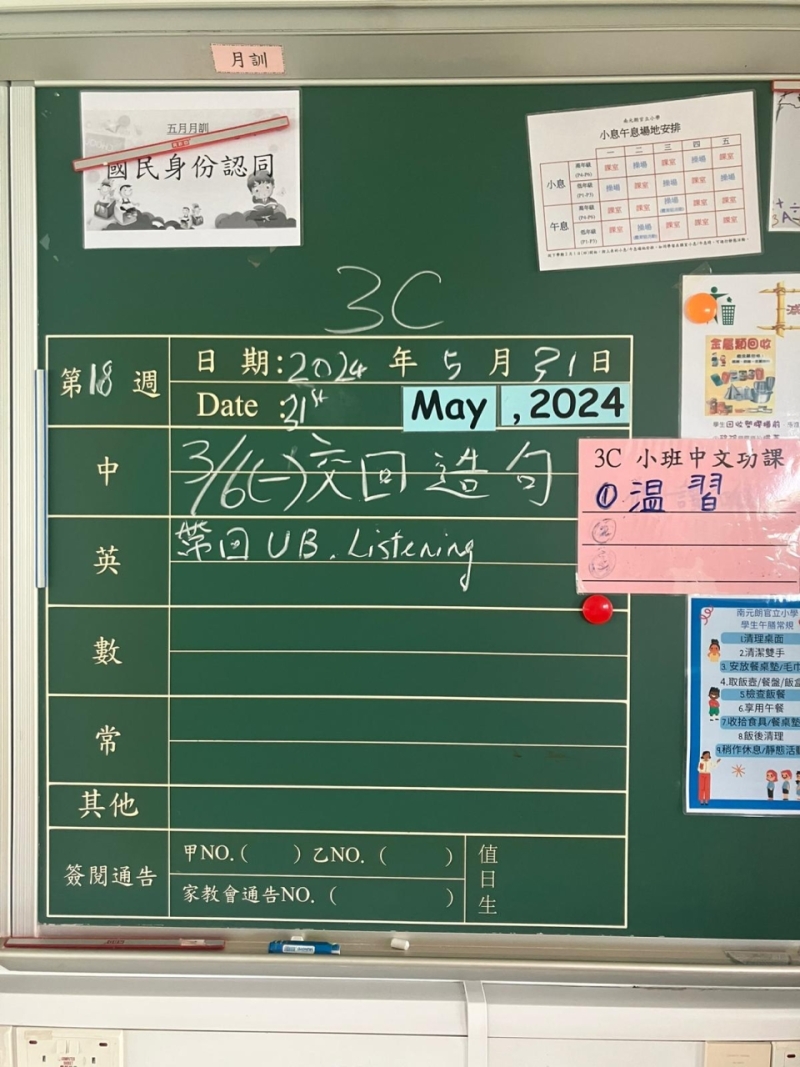 月訓
五月月訓
國民身份認同
南元朗官立小學
小息午息場地安排
一 二 三 四 五
小息
高年級
(P4-P6)
課室 操場 課室 操場 課室
低年級
操場 課室 操場 課室 操場
午息
高年級
課室 課室 操場 課室 課室
低年級
課室 操場 課室 課室 課室
3C
第18週
日期:2024年5月31日
Date :31st May ,2024
中
3/6(一)交回造句
英
帶回UB, Listening
數
常
其他
簽閱通告
甲NO.( ) 乙NO.( )
家教會通告NO.( )
值日生
金屬類回收
3C 小班中文功課
①温習
②
③
南元朗官立小學
學生午膳常規
1.清理桌面
2.清潔雙手
3.安放餐桌墊/毛巾
4.取飯壺/餐盤/飯盒
5.檢查飯餐
6.享用午餐
7.收拾食具/餐桌墊
8.飯後清理
9.稍作休息/靜態活動